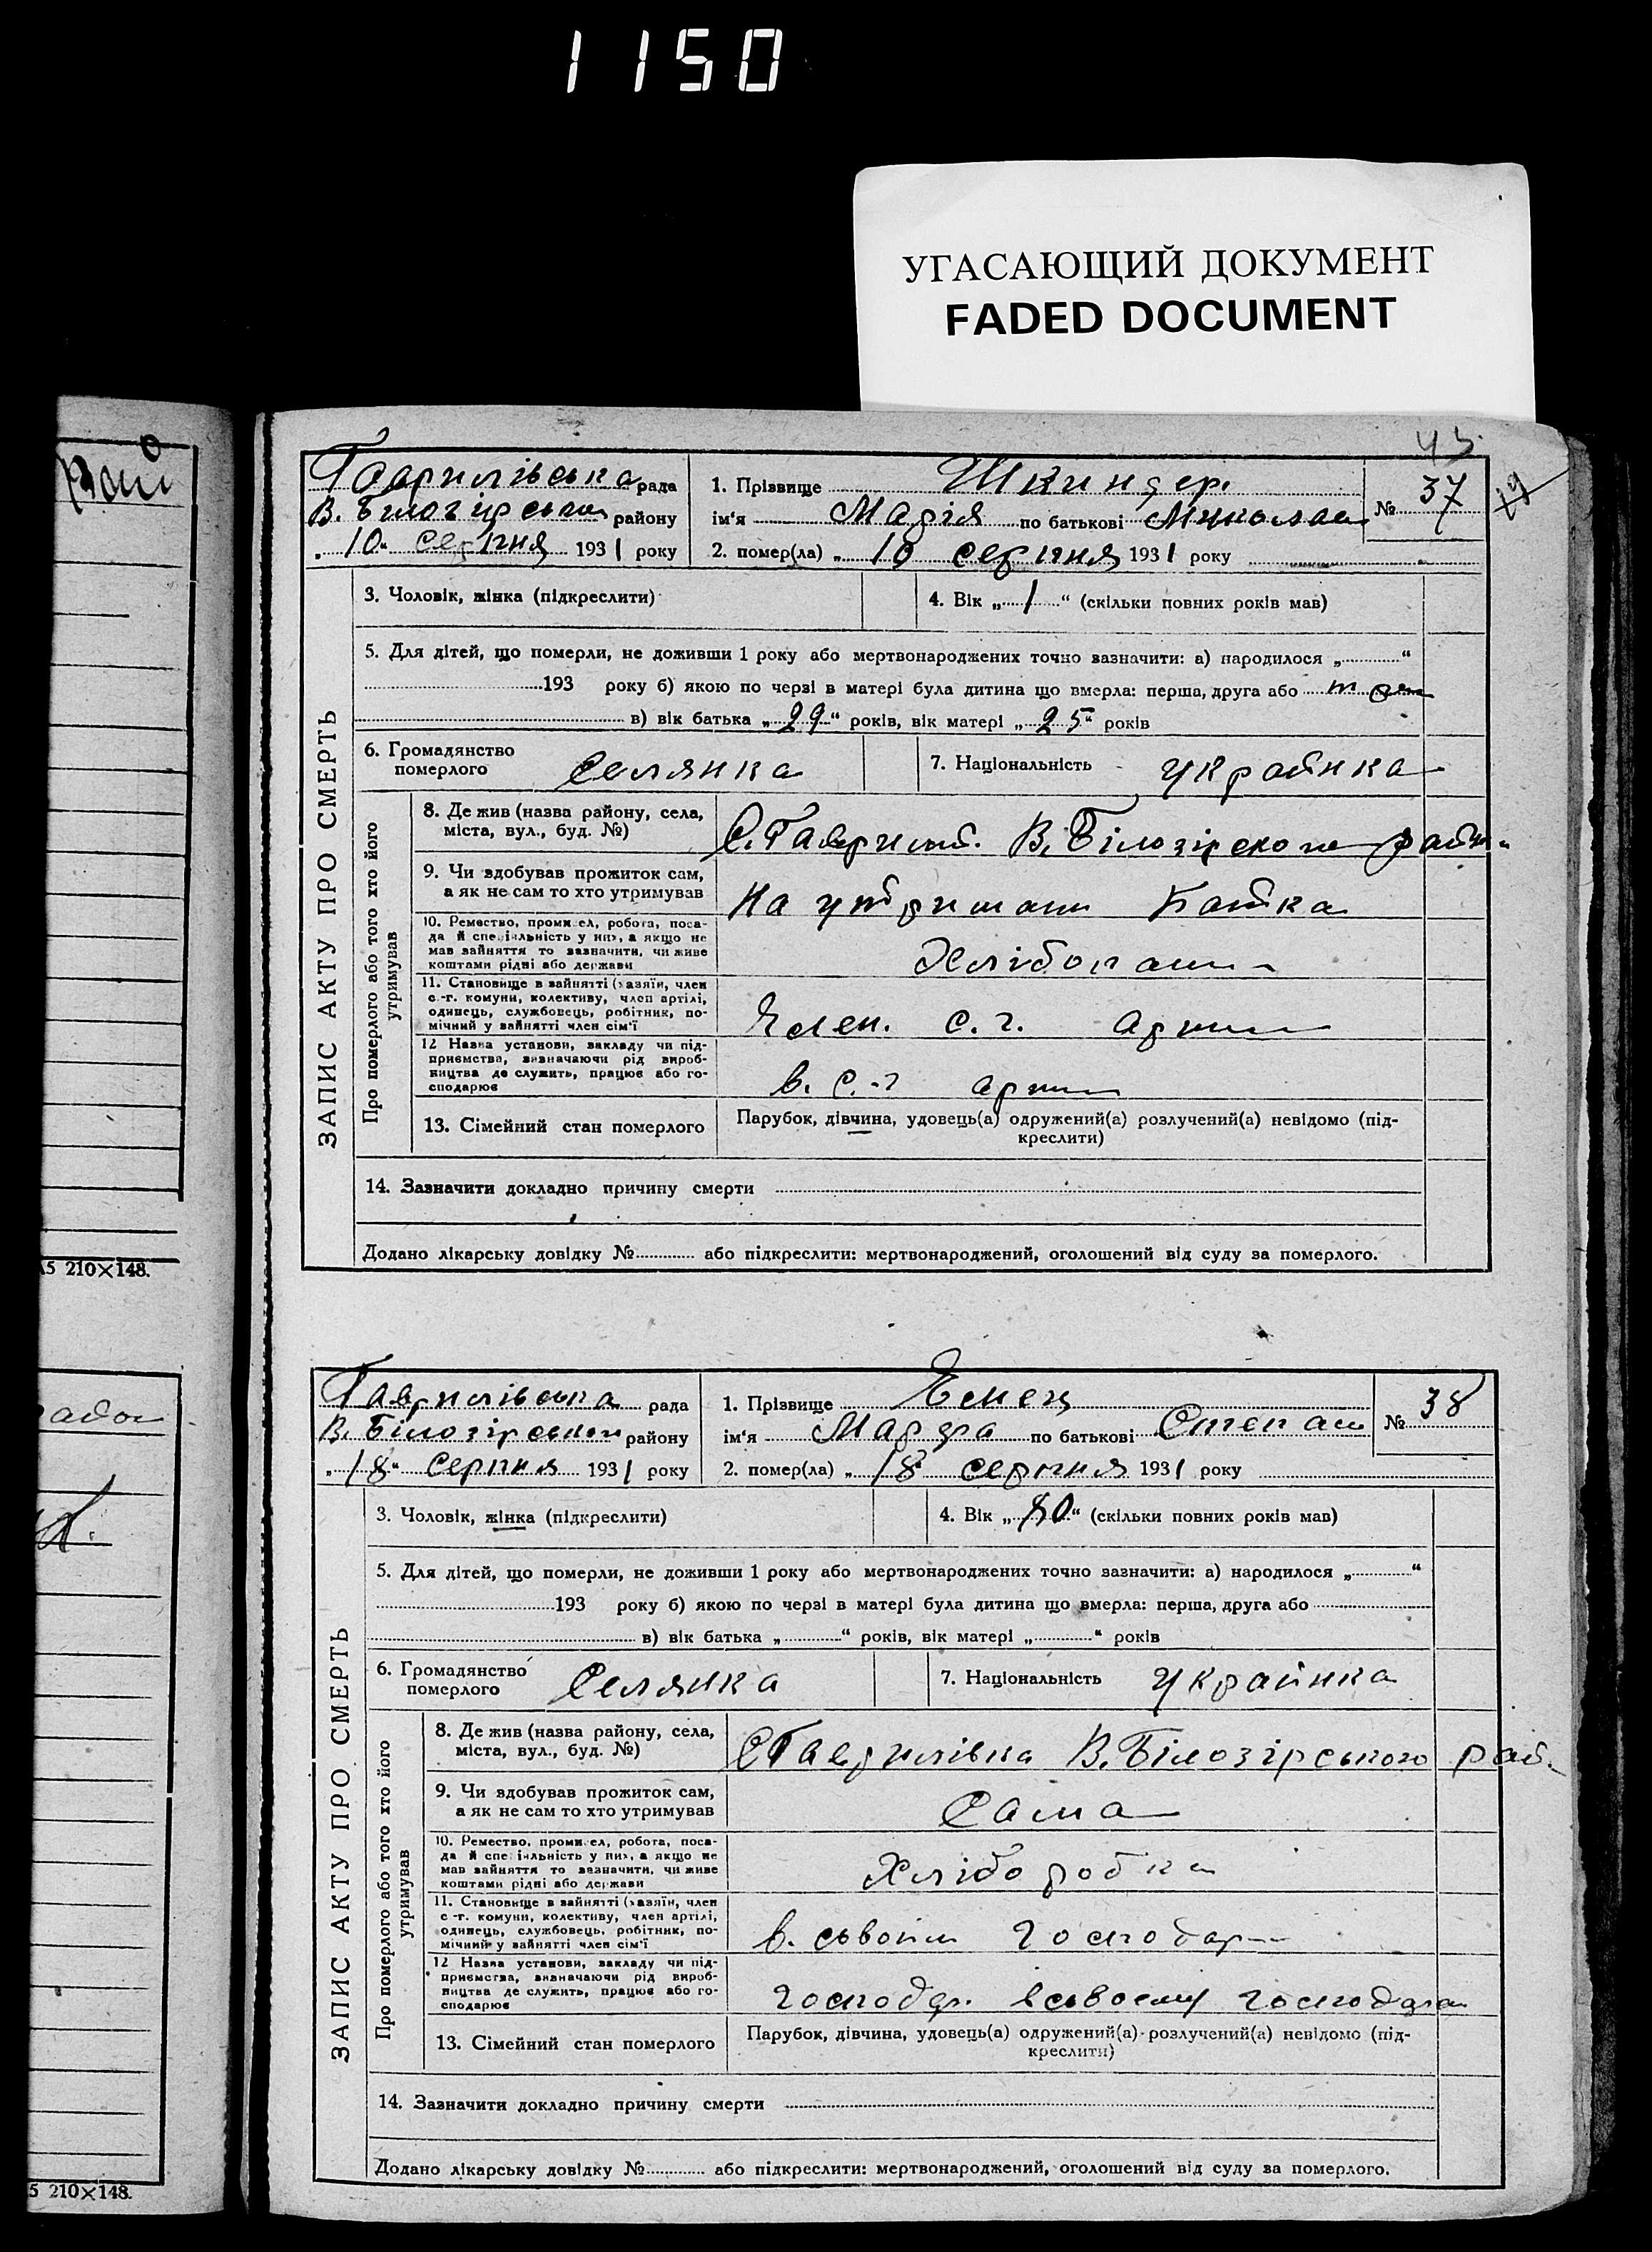 1150
УГАСАЮЩИЙ ДОКУМЕНТ
FADED DOCUMENT
рай
А5 210×148.
5 210×148.
43
ЗАПИС АКТУ ПРО СМЕРТЬ
Гаврилівська рада
В. Білозірськ району
„10" серпня 1931 року
1. Прізвище Шкиндер.
№ 37
ім'я Марія по батькові Миколаєв
2. помер(ла) „ 10 серпня 1931 року
3. Чоловік, жінка (підкреслити)
4. Вік „ 1 " (скільки повних років мав)
5. Для дітей, що померли, не доживши 1 року або мертвонароджених точно зазначити: а) народилося „ "
193 року б) якою по черзі в матері була дитина що вмерла: перша, друга або
в) вік батька „ 29 " років, вік матері „ 25 " років
6. Громадянство померлого Селянка
7. Національність українка
Про померлого або того хто його утримував
8. Де жив (назва району, села,
міста, вул., буд. №)
С. Гаврилів. В. Білозірского район.
9. Чи здобував прожиток сам,
а як не сам то хто утримував
На утриман Батка
10. Ремество, промисел, робота, поса-
да й спеціяльність у них, а якщо не
мав зайняття то зазначити, чи живе
коштами рідні або держави
11. Становище в зайнятті (хазяїн, член
с.-г. комуни, колективу, член артілі,
одинець, службовець, робітник, по-
мічний у зайнятті член сім'ї
Член. с. г. арт
12 Назва установи, закладу чи під-
приємства, визначаючи рід вироб-
ництва де служить, працює або го-
сподарює
в. с.-г арт
13. Сімейний стан померлого
Парубок, дівчина, удовець(а) одружений(а) розлучений(а) невідомо (під-
креслити)
14. Зазначити докладно причину смерти
Додано лікарську довідку № або підкреслити: мертвонароджений, оголошений від суду за померлого.
ЗАПИС АКТУ ПРО СМЕРТЬ
Гаврилівська рада
В. Білозірського району
„18" Серпня 1931 року
1. Прізвище Емец
№ 38
ім'я Марфа по батькові Степан
2. помер(ла) „ 18 серпня 1931 року
3. Чоловік, жінка (підкреслити)
4. Вік „ 80 " (скільки повних років мав)
5. Для дітей, що померли, не доживши 1 року або мертвонароджених точно зазначити: а) народилося „ "
193 року б) якою по черзі в матері була дитина що вмерла: перша, друга або
в) вік батька „ " років, вік матері „ " років
6. Громадянство померлого Селянка
7. Національність Українка
Про померлого або того хто його утримував
8. Де жив (назва району, села,
міста, вул., буд. №)
С Гаврилівка В. Білозірського рай.
9. Чи здобував прожиток сам,
а як не сам то хто утримував
Сама
10. Ремество, промисел, робота, поса-
да й спеціяльність у них, а якщо не
мав зайняття то зазначити, чи живе
коштами рідні або держави
Хліборобка
11. Становище в зайнятті (хазяїн, член
с-г. комуни, колективу, член артілі,
одинець, службовець, робітник, по-
мічний у зайнятті член сім'ї
в. свойім господар
12 Назва установи, закладу чи під-
приємства, визначаючи рід вироб-
ництва де служить, працює або го-
сподарює
господар. всьвоему господар
13. Сімейний стан померлого
Парубок, дівчина, удовець(а) одружений(а) розлучений(а) невідомо (під-
креслити)
14. Зазначити докладно причину смерти
Додано лікарську довідку № або підкреслити: мертвонароджений, оголошений від суду за померлого.